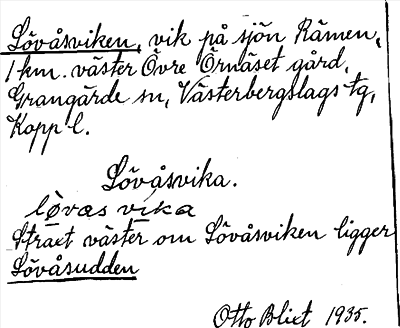 Lövåsviken, vik på sjön Rämen,
1 km. väster Övre Örnäset gård,
Grangärde sn, Västerbergslags tg,
Kopp l.
Lövåsvika.
lòvas vika
Straxt väster om Lövåsviken ligger
Lövåsudden
Otto Blixt 1935.